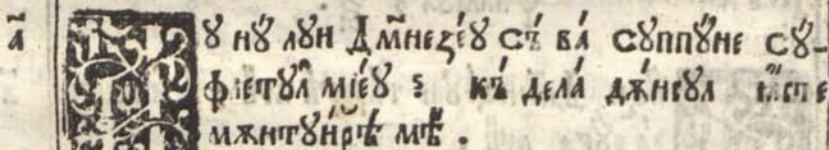 а҃ Ꙋ нꙋ лꙋи Дм҃незе́ꙋ съ́ ва́ сꙋппꙋ́не сꙋ́-
фле́тꙋл мїе́ꙋ : къ́ дела́ дѫ́нсꙋл є́сте
мѫнтꙋи́рѣ мѣ̀ .